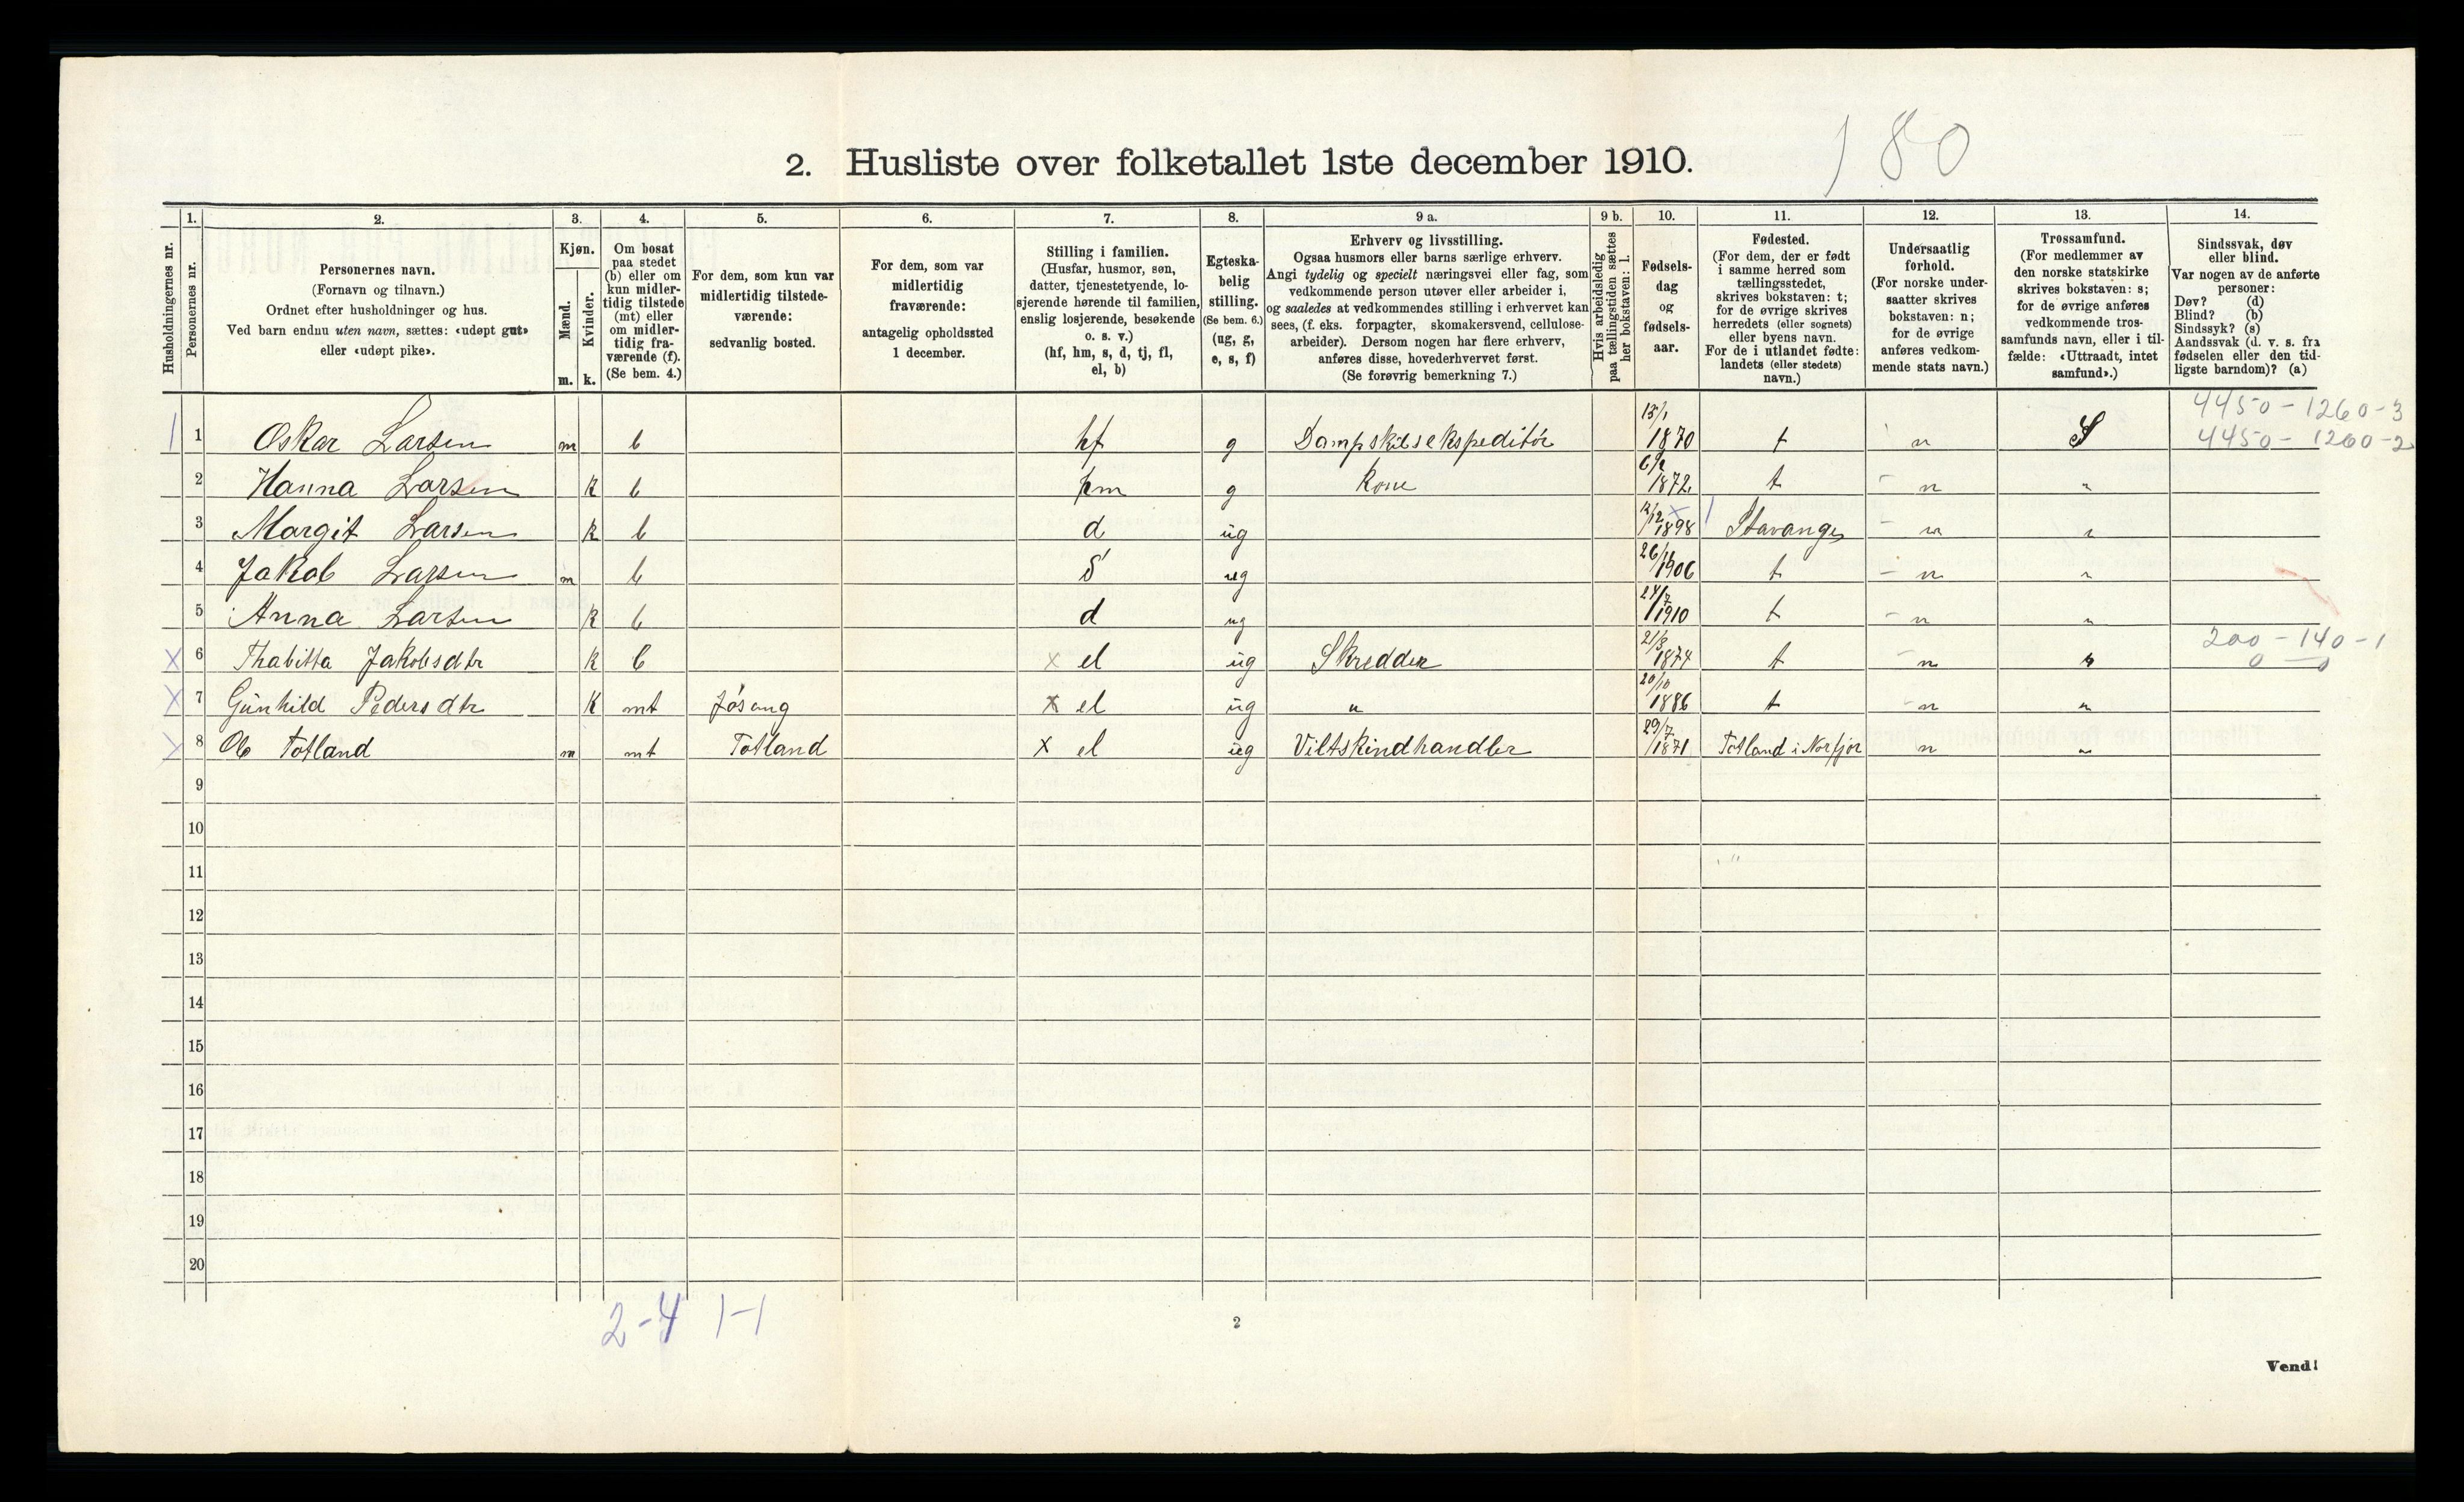 180
2. Husliste over folketallet 1ste december 1910.
Husholdningernes nr.
1. Personernes nr.
2. Personernes navn.
(Fornavn og tilnavn.)
Ordnet efter husholdninger og hus.
Ved barn endnu uten navn, sættes: «udøpt gut»
eller «udøpt pike».
3. Kjøn.
Mænd. m.
Kvinder. k.
4. Om bosat
paa stedet
(b) eller om
kun midler-
tidig tilstede
(mt) eller
om midler-
tidig fra-
værende (f).
(Se bem. 4.)
5. For dem, som kun var
midlertidig tilstede-
værende:
sedvanlig bosted.
6. For dem, som var
midlertidig
fraværende:
antagelig opholdssted
1 december.
7. Stilling i familien.
(Husfar, husmor, søn,
datter, tjenestetyende, lo-
sjerende hørende til familien,
enslig losjerende, besøkende
o. s. v.)
(hf, hm, s, d, tj, fl,
el, b)
8. Egteska-
belig
stilling.
(Se bem. 6.)
(ug, g,
e, s, f)
9 a. Erhverv og livsstilling.
Ogsaa husmors eller barns særlige erhverv.
Angi tydelig og specielt næringsvei eller fag, som
vedkommende person utøver eller arbeider i,
og saaledes at vedkommendes stilling i erhvervet kan
sees, (f. eks. forpagter, skomakersvend, cellulose-
arbeider). Dersom nogen har flere erhverv,
anføres disse, hovederhvervet først.
(Se forøvrig bemerkning 7.)
9 b. Hvis arbeidsledig
paa tællingstiden sættes
her bokstaven: l.
10. Fødsels-
dag
og
fødsels-
aar.
11. Fødested.
(For dem, der er født
i samme herred som
tællingsstedet,
skrives bokstaven: t;
for de øvrige skrives
herredets (eller sognets)
eller byens navn.
For de i utlandet fødte:
landets (eller stedets)
navn.)
12. Undersaatlig
forhold.
(For norske under-
saatter skrives
bokstaven: n;
for de øvrige
anføres vedkom-
mende stats navn.)
13. Trossamfund.
(For medlemmer av
den norske statskirke
skrives bokstaven: s;
for de øvrige anføres
vedkommende tros-
samfunds navn, eller i til-
fælde: «Uttraadt, intet
samfund».)
14. Sindssvak, døv
eller blind.
Var nogen av de anførte
personer:
Døv? (d)
Blind? (b)
Sindssyk? (s)
Aandssvak (d. v. s. fra
fødselen eller den tid-
ligste barndom)? (a)
4450 - 1260 - 3
1 1 Oskar Larsen m b hf g Dampskibsekspeditör 13/1 1870 t n S 4450 - 1260 - 2
2 Hanna Larsen k b hm g Kone 1872 t n "
3 Margit Larsen k b d ug 12/12 1898 Stavanger n "
4 Jakob Larsen m b s ug 1906 t n "
5 Anna Larsen k b d ug 24/7 1910 t n "
200 - 140 - 1
X 6 Thabitta Jakobsdtr k b x el ug Skredder 21/3 1874 t n " 0 - 0
X 7 Gunhild Pedersdtr k mt Jösang x el ug " 20/10 1886 t n "
X 8 Ole Totland m mt Totland x el ug Viltskindhandler 29/7 1871 Totland i Norfjor n "
9
10
11
12
13
14
15
16
17
18
19
20
2-4 1-1
2
Vend!